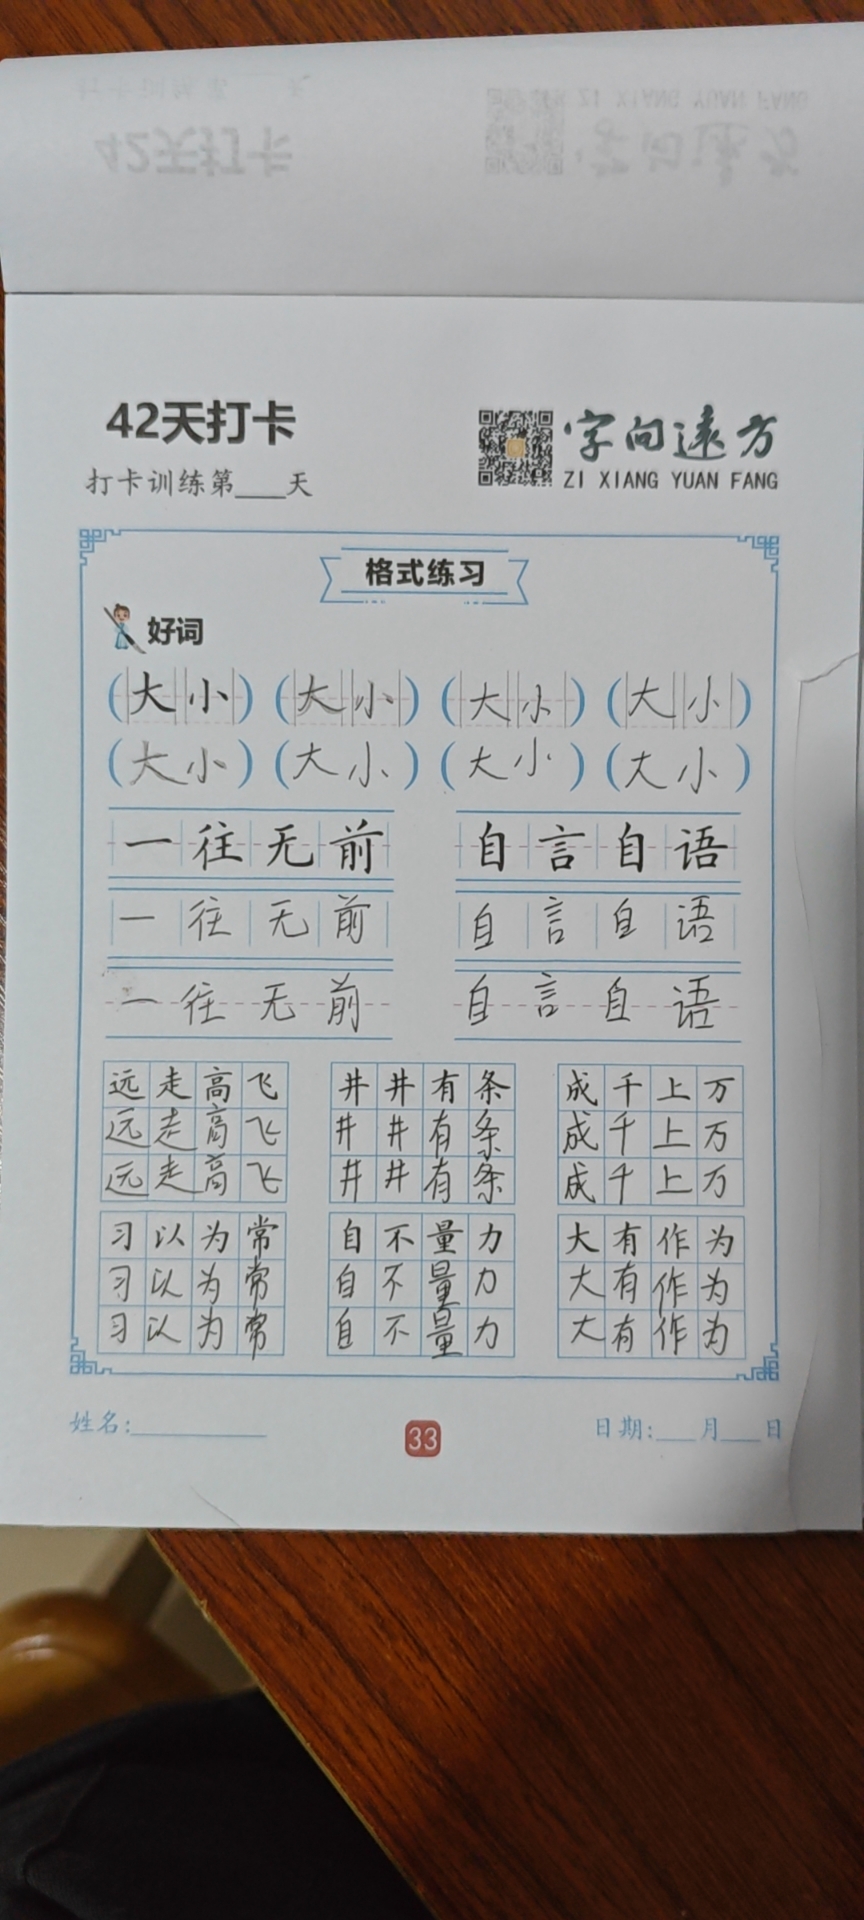 42天打卡
字向远方
打卡训练第___天
ZI XIANG YUAN FANG
格式练习
好词
(大小) (大小) (大小) (大小)
(大小) (大小) (大小) (大小)
一往无前 自言自语
一往无前 自言自语
一往无前 自言自语
远走高飞 井井有条 成千上万
远走高飞 井井有条 成千上万
远走高飞 井井有条 成千上万
习以为常 自不量力 大有作为
习以为常 自不量力 大有作为
习以为常 自不量力 大有作为
姓名:___ 33 日期:___月___日